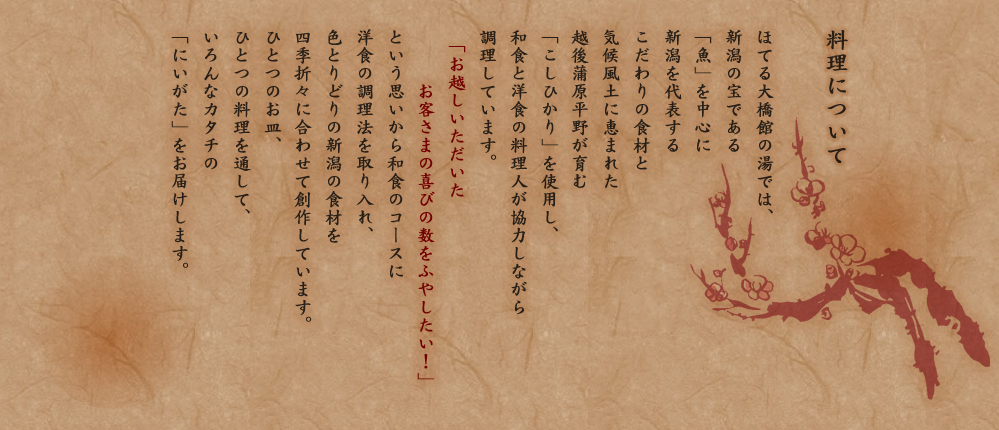 料理について
ほてる大橋館の湯では、
新潟の宝である
「魚」を中心に
新潟を代表する
こだわりの食材と
気候風土に恵まれた
越後蒲原平野が育む
「こしひかり」を使用し、
和食と洋食の料理人が協力しながら
調理しています。
「お越しいただいた
お客さまの喜びの数をふやしたい！」
という思いから和食のコースに
洋食の調理法を取り入れ、
色とりどりの新潟の食材を
四季折々に合わせて創作しています。
ひとつのお皿、
ひとつの料理を通して、
いろんなカタチの
「にいがた」をお届けします。